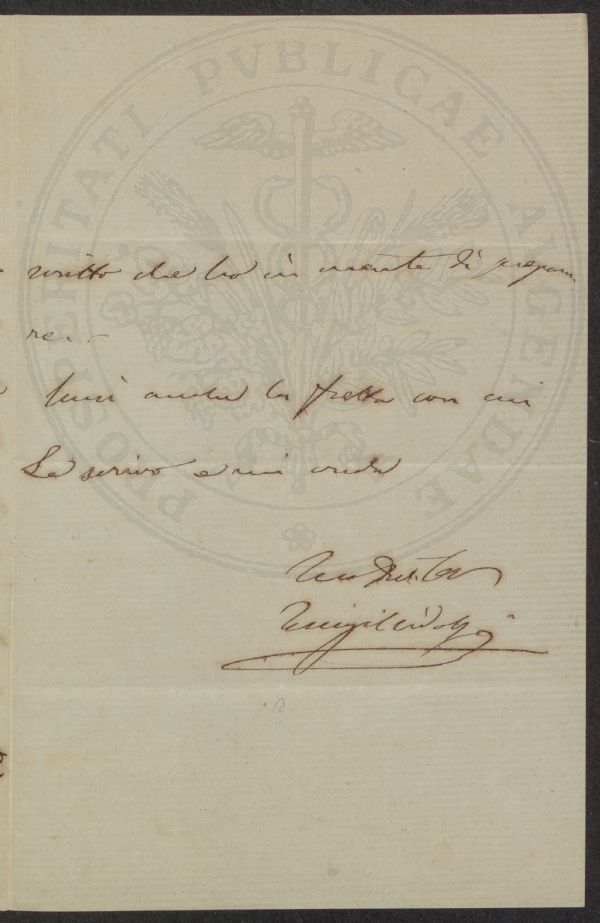 PROSPERITATI PVBLICAE AVGENDAE
scritto che ho in mente di prepara
re.
Scusi anche la fretta con cui
Le scrivo e mi creda